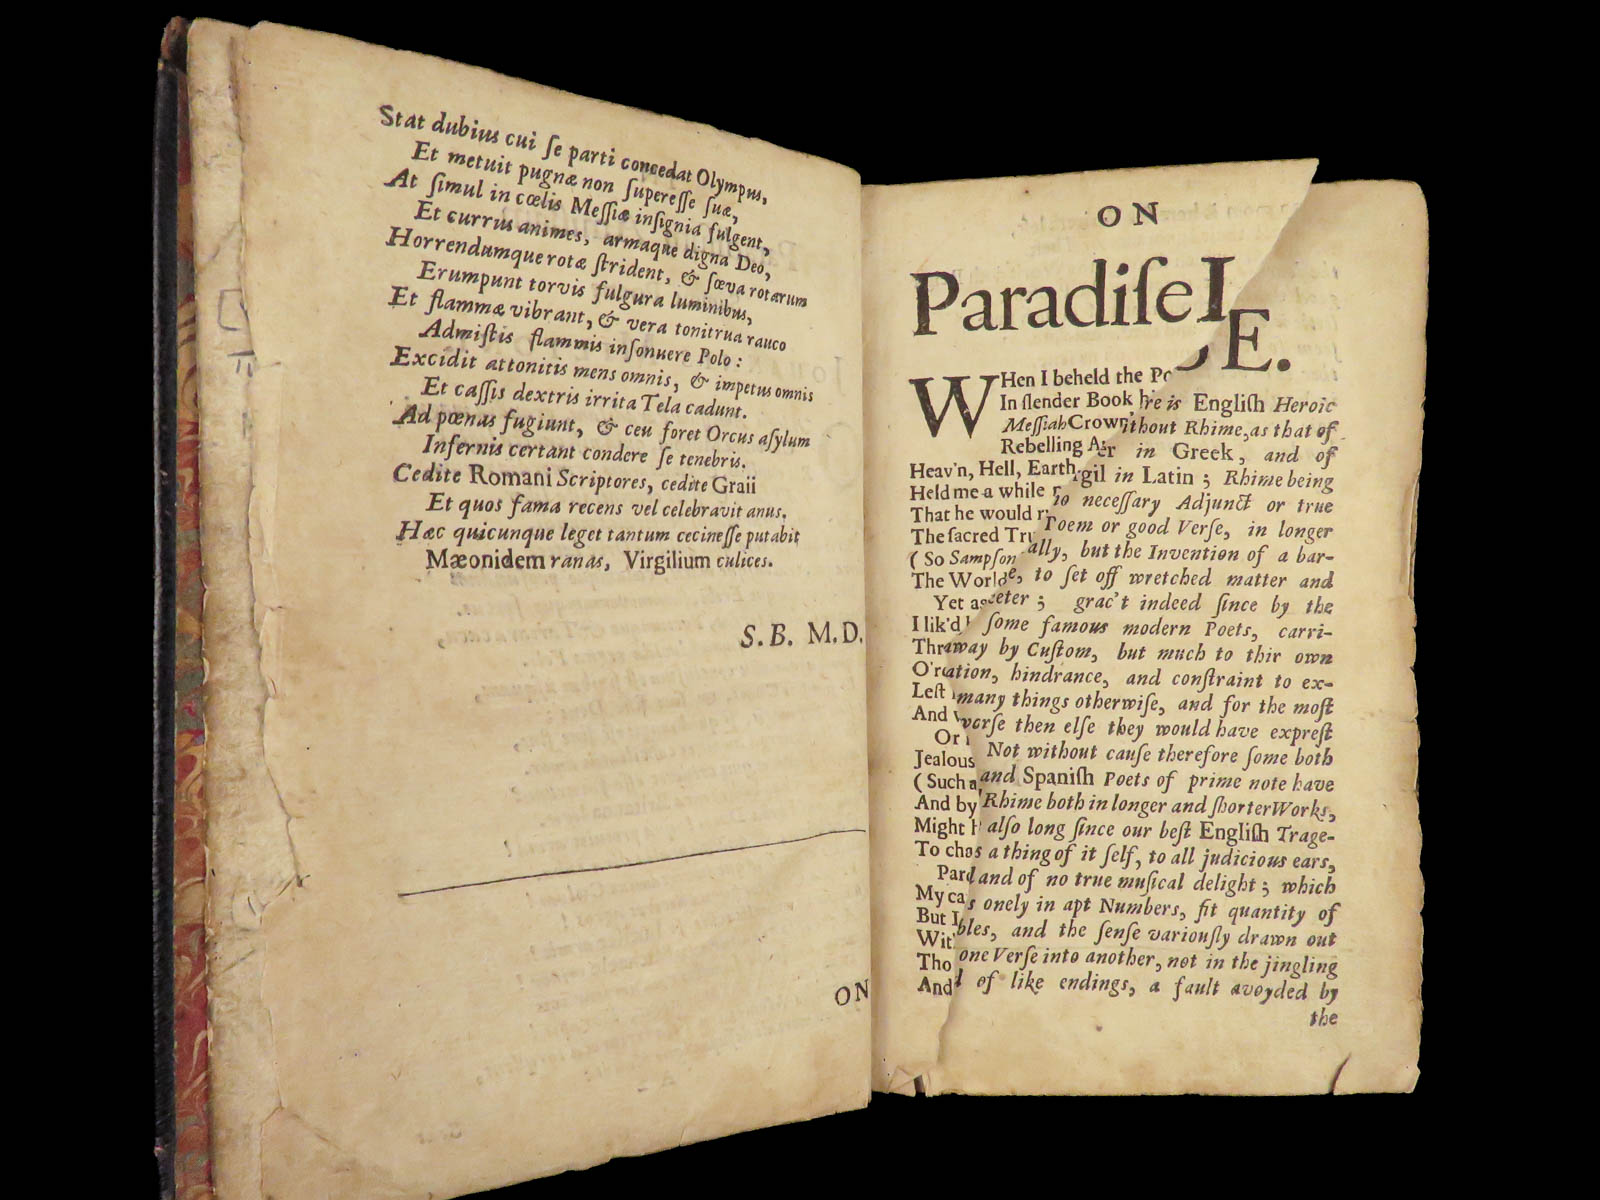 Stat dubius cui ſe parti concedat Olympus,
Et metuit pugnæ non ſupereſſe ſuæ,
At ſimul in cœlis Meſſiæ inſignia fulgent,
Et currus animes, armaque digna Deo,
Horrendumque rotæ ſtrident, & ſæva rotarum
Erumpunt torvis fulgura luminibus,
Et flammæ vibrant, & vera tonitrua rauco
Admiſtis flammis inſonuere Polo :
Excidit attonitis mens omnis, & impetus omnis
Et caſſis dextris irrita Tela cadunt.
Ad pœnas fugiunt, & ceu foret Orcus aſylum
Infernis certant condere ſe tenebris.
Cedite Romani Scriptores, cedite Graii
Et quos fama recens vel celebravit anus.
Hæc quicunque leget tantum cecineſſe putabit
Mæonidem ranas, Virgilium culices.
S. B. M. D.
ON
ON
Paradiſe L
WHen I beheld the Po
In ſlender Book h
Meſſiah Crown
Rebelling A
Heav'n, Hell, Earth,
Held me a while
That he would r
The ſacred Tru
( So Sampſon
The World
Yet as
I lik'd
Thr
O'r
Left
And
Or
Jealous
( Such a
And by
Might h
To cha
Pard
My ca
But I
Wit
Tho
And
E.
re is Engliſh Heroic
ithout Rhime, as that of
er in Greek, and of
rgil in Latin ; Rhime being
no neceſſary Adjunct or true
Poem or good Verſe, in longer
ally, but the Invention of a bar-
e, to ſet off wretched matter and
eeter ; grac't indeed ſince by the
ſome famous modern Poets, carri-
away by Cuſtom, but much to thir own
ation, hindrance, and conſtraint to ex-
many things otherwiſe, and for the moſt
vorſe then elſe they would have expreſt
Not without cauſe therefore ſome both
and Spaniſh Poets of prime note have
Rhime both in longer and ſhorter Works,
alſo long ſince our beſt Engliſh Trage-
s a thing of it ſelf, to all judicious ears,
and of no true muſical delight ; which
s onely in apt Numbers, fit quantity of
bles, and the ſenſe variouſly drawn out
one Verſe into another, not in the jingling
d of like endings, a fault avoyded by
the